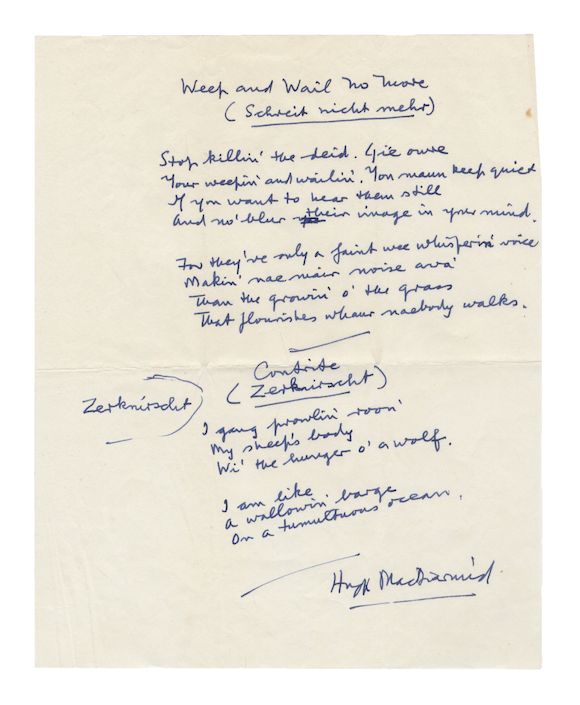 Weep and Wail No More
(Schreit nicht mehr)
Stop killin' the deid. Gie owre
Your weepin' and wailin'. You maun keep quiet
If you want to hear them still
And no' blur their image in your mind.
For they've only a faint wee whisperin' voice
Makin' nae mair noise ava'
Than the growin' o' the grass
That flourishes whaur naebody walks.
Contrite
(Zerknirscht)
Zerknirscht
I gang prowlin' roon'
My sheep's body
Wi' the hunger o' a wolf.
I am like
a wallowin' barge
On a tumultuous ocean.
Hugh MacDiarmid